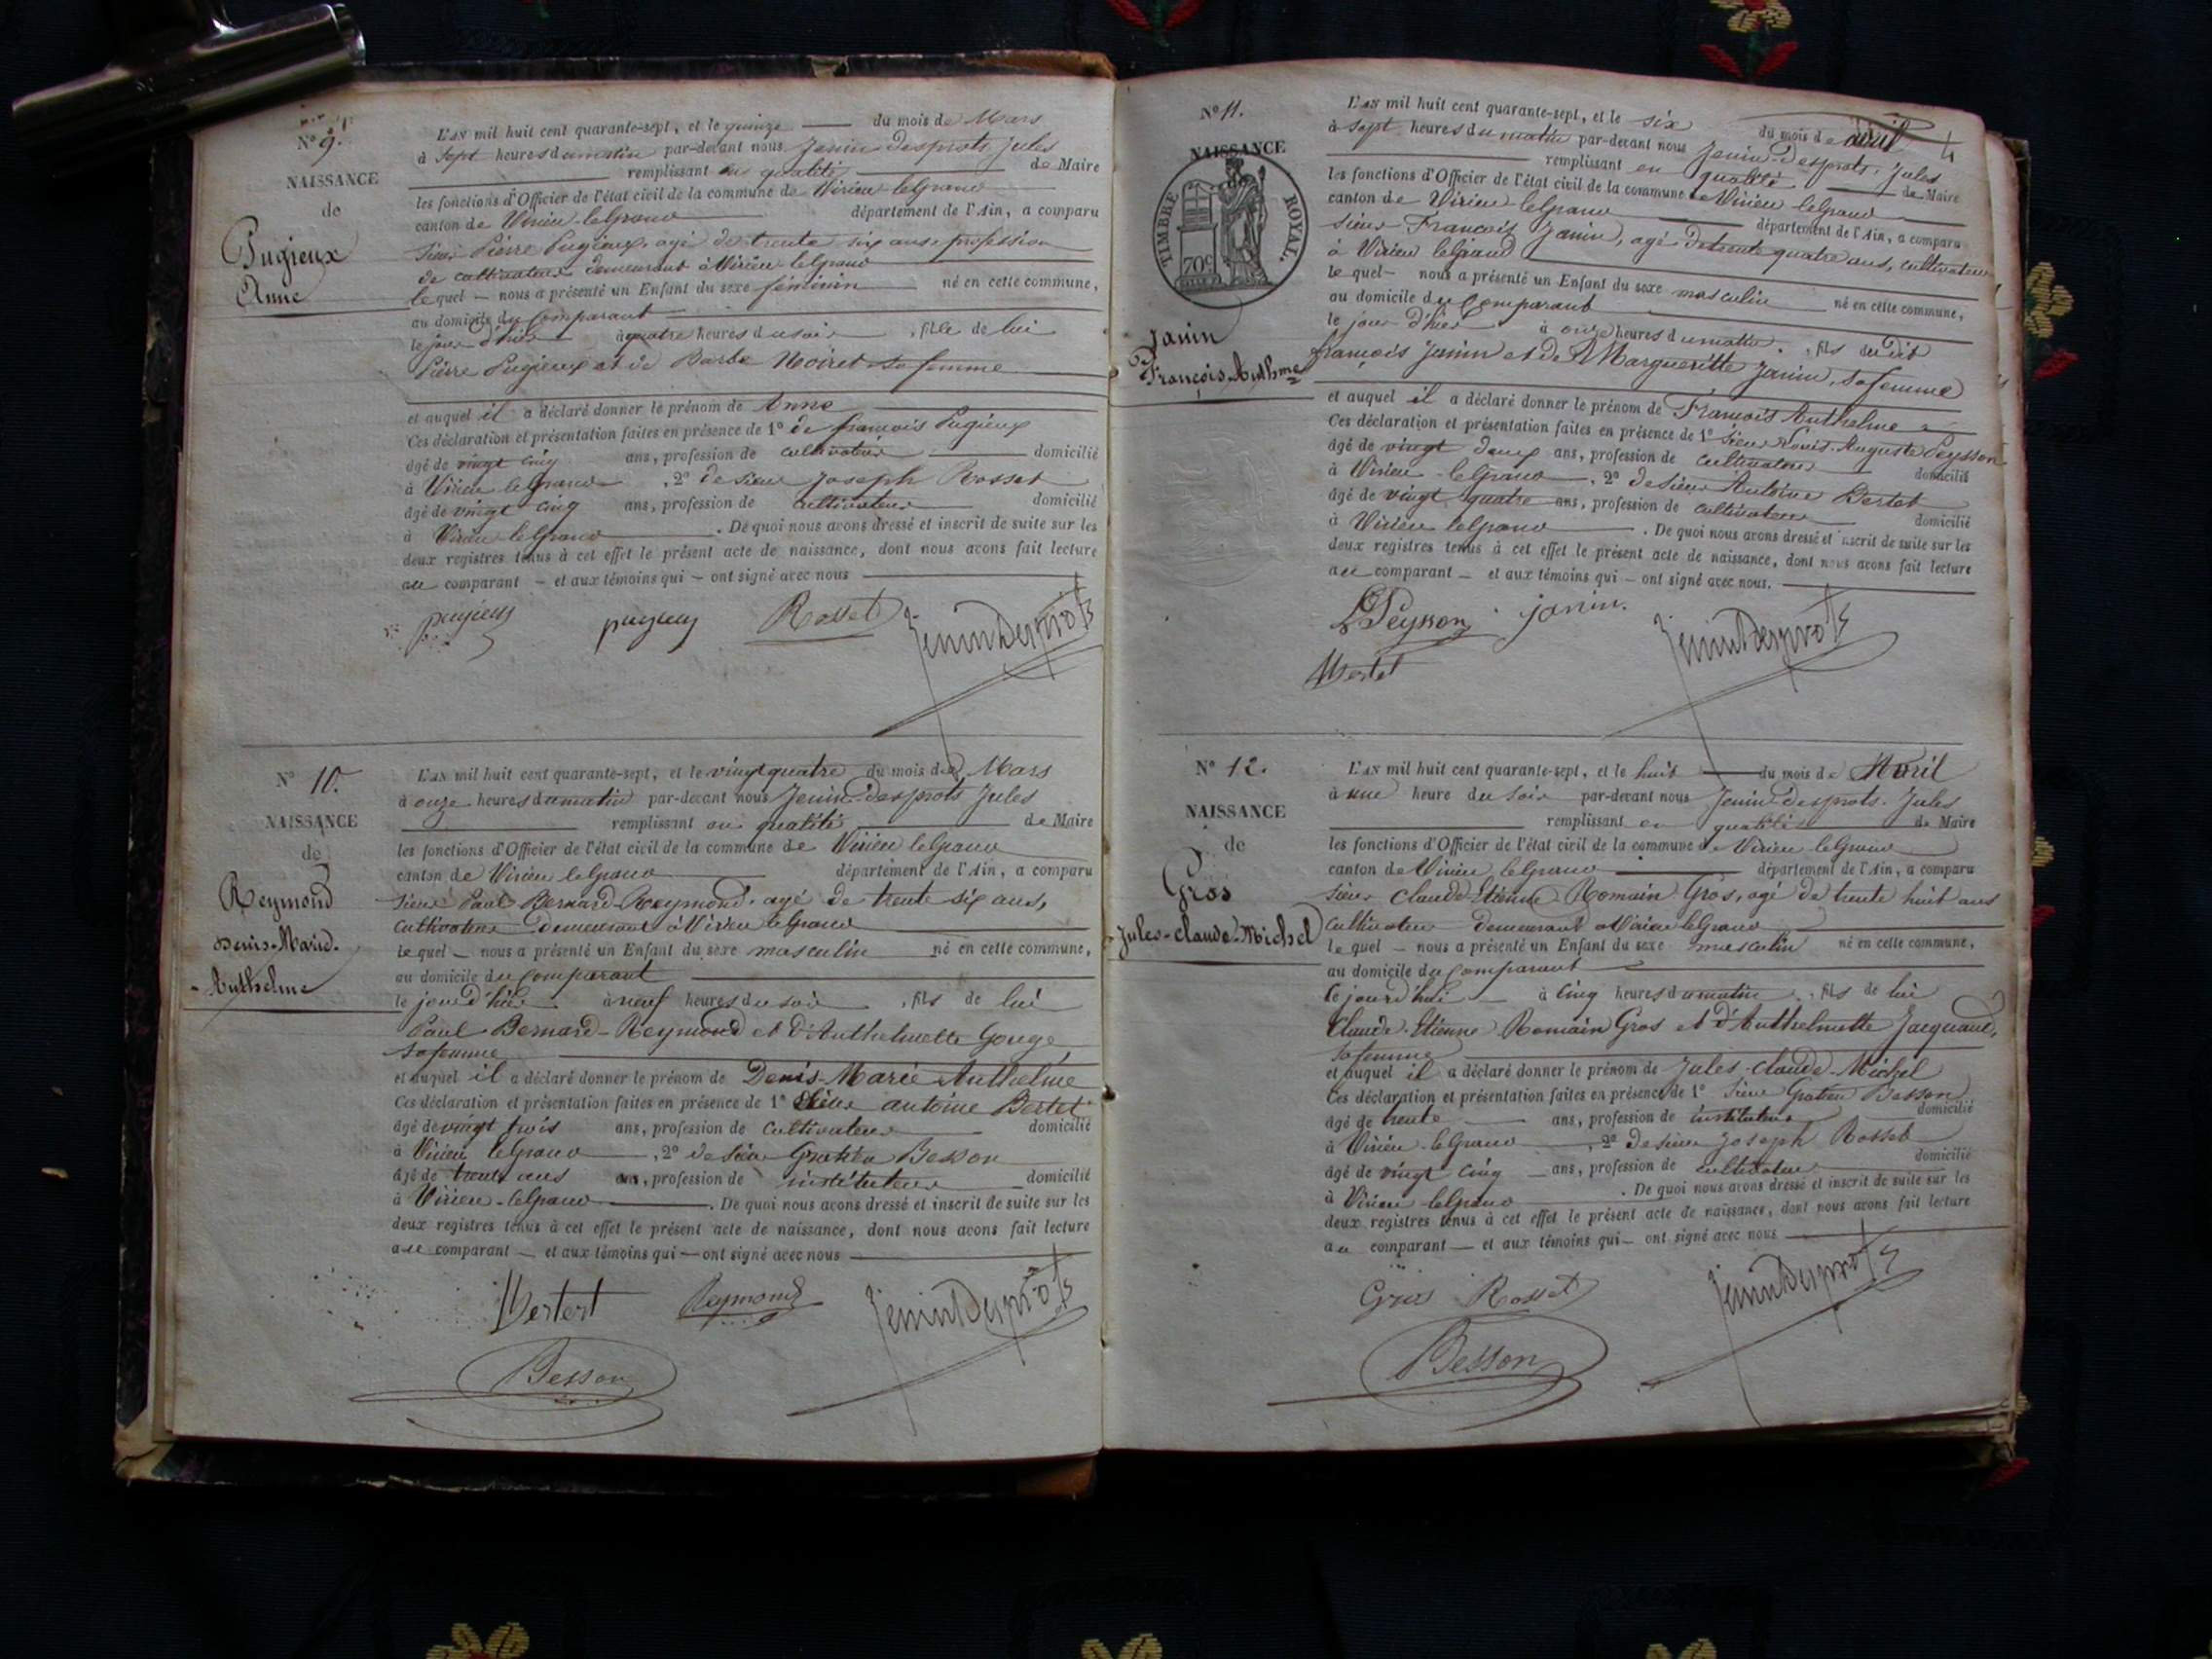 N° 9.
NAISSANCE
de
Pugieux
Anne
L'AN mil huit cent quarante-sept, et le quinze du mois de Mars
à sept heures du matin par-devant nous Jenin desprots Jules
remplissant en qualité de Maire
les fonctions d'Officier de l'état civil de la commune de Virieu le grand
canton de Virieu le grand département de l'Ain, a comparu
Sieur Pierre Pugieux, agé de trente six ans, profession
de cultivateur demeurant à Virieu le grand
lequel nous a présenté un Enfant du sexe féminin né en cette commune,
au domicile du Comparant
le jour d'hier à quatre heures du soir, fille de lui
Pierre Pugieux et de Barbe Noiret sa femme
et auquel il a déclaré donner le prénom de Anne
Ces déclaration et présentation faites en présence de 1° de françois Pugieux
âgé de vingt cinq ans, profession de cultivateur domicilié
à Virieu le grand, 2° de sieur Joseph Rosset
âgé de vingt cinq ans, profession de cultivateur domicilié
à Virieu le grand. De quoi nous avons dressé et inscrit de suite sur les
deux registres tenus à cet effet le présent acte de naissance, dont nous avons fait lecture
au comparant et aux témoins qui ont signé avec nous
pugieux pugieux Rosset Jenin Desprots
N° 10.
NAISSANCE
de
Reymond
Denis-Marie-
Anthelme
L'AN mil huit cent quarante-sept, et le vingt quatre du mois de Mars
à onze heures du matin par-devant nous Jenin desprots Jules
remplissant en qualité de Maire
les fonctions d'Officier de l'état civil de la commune de Virieu le grand
canton de Virieu le grand département de l'Ain, a comparu
Sieur Paul Bernard-Reymond, agé de trente six ans,
cultivateur demeurant à Virieu le grand
lequel nous a présenté un Enfant du sexe masculin né en cette commune,
au domicile du Comparant
le jour d'hier à neuf heures du soir, fils de lui
Paul Bernard-Reymond et d'Anthelmette Gouge,
sa femme
et auquel il a déclaré donner le prénom de Denis-Marie Anthelme
Ces déclaration et présentation faites en présence de 1° Sieur antoine Bertet
âgé de vingt trois ans, profession de cultivateur domicilié
à Virieu le grand, 2° de sieur Gratien Besson
âgé de trente ans ans, profession de instituteur domicilié
à Virieu-le grand. De quoi nous avons dressé et inscrit de suite sur les
deux registres tenus à cet effet le présent acte de naissance, dont nous avons fait lecture
au comparant et aux témoins qui ont signé avec nous
Bertert Reymond Jenin Desprots
Besson
N° 11.
NAISSANCE
TIMBRE ROYAL.
70c
Janin
François Anthme
L'AN mil huit cent quarante-sept, et le six du mois de avril
4
à sept heures du matin par-devant nous Jenin-desprots, Jules
remplissant en qualité de Maire
les fonctions d'Officier de l'état civil de la commune de Virieu le grand
canton de Virieu le grand département de l'Ain, a comparu
sieur François Janin, agé de trente quatre ans, cultivateur
à Virieu le grand
lequel nous a présenté un Enfant du sexe masculin né en cette commune,
au domicile du Comparant
le jour d'hier à onze heures du matin, fils du dit
françois Janin et de Margueritte Janin, sa femme
et auquel il a déclaré donner le prénom de François Anthelme
Ces déclaration et présentation faites en présence de 1° Sieur Louis-Auguste Peysson
âgé de vingt deux ans, profession de cultivateur domicilié
à Virieu-le grand, 2° de sieur Antoine Bertet
âgé de vingt quatre ans, profession de cultivateur domicilié
à Virieu le grand. De quoi nous avons dressé et inscrit de suite sur les
deux registres tenus à cet effet le présent acte de naissance, dont nous avons fait lecture
au comparant et aux témoins qui ont signé avec nous.
Peysson janin. Jenin Desprots
Bertet
N° 12.
NAISSANCE
de
Gros
Jules-claude-Michel
L'AN mil huit cent quarante-sept, et le huit du mois de Avril
à une heure du soir par-devant nous Jenin desprots, Jules
remplissant en qualité de Maire
les fonctions d'Officier de l'état civil de la commune de Virieu le grand
canton de Virieu le grand département de l'Ain, a comparu
sieur Claude-Etienne Romain Gros, agé de trente huit ans
cultivateur demeurant à Virieu le grand
lequel nous a présenté un Enfant du sexe masculin né en cette commune,
au domicile du Comparant
le jourd'hui à cinq heures du matin, fils de lui
Claude-Etienne Romain Gros et d'Anthelmette Jacquand,
sa femme
et auquel il a déclaré donner le prénom de Jules-claude-Michel
Ces déclaration et présentation faites en présence de 1° Sieur Gratien Besson
âgé de trente ans, profession de instituteur domicilié
à Virieu-le grand, 2° de sieur Joseph Rosset
âgé de vingt cinq ans, profession de cultivateur domicilié
à Virieu le grand. De quoi nous avons dressé et inscrit de suite sur les
deux registres tenus à cet effet le présent acte de naissance, dont nous avons fait lecture
au comparant et aux témoins qui ont signé avec nous
Gros Rosset Jenin Desprots
Besson